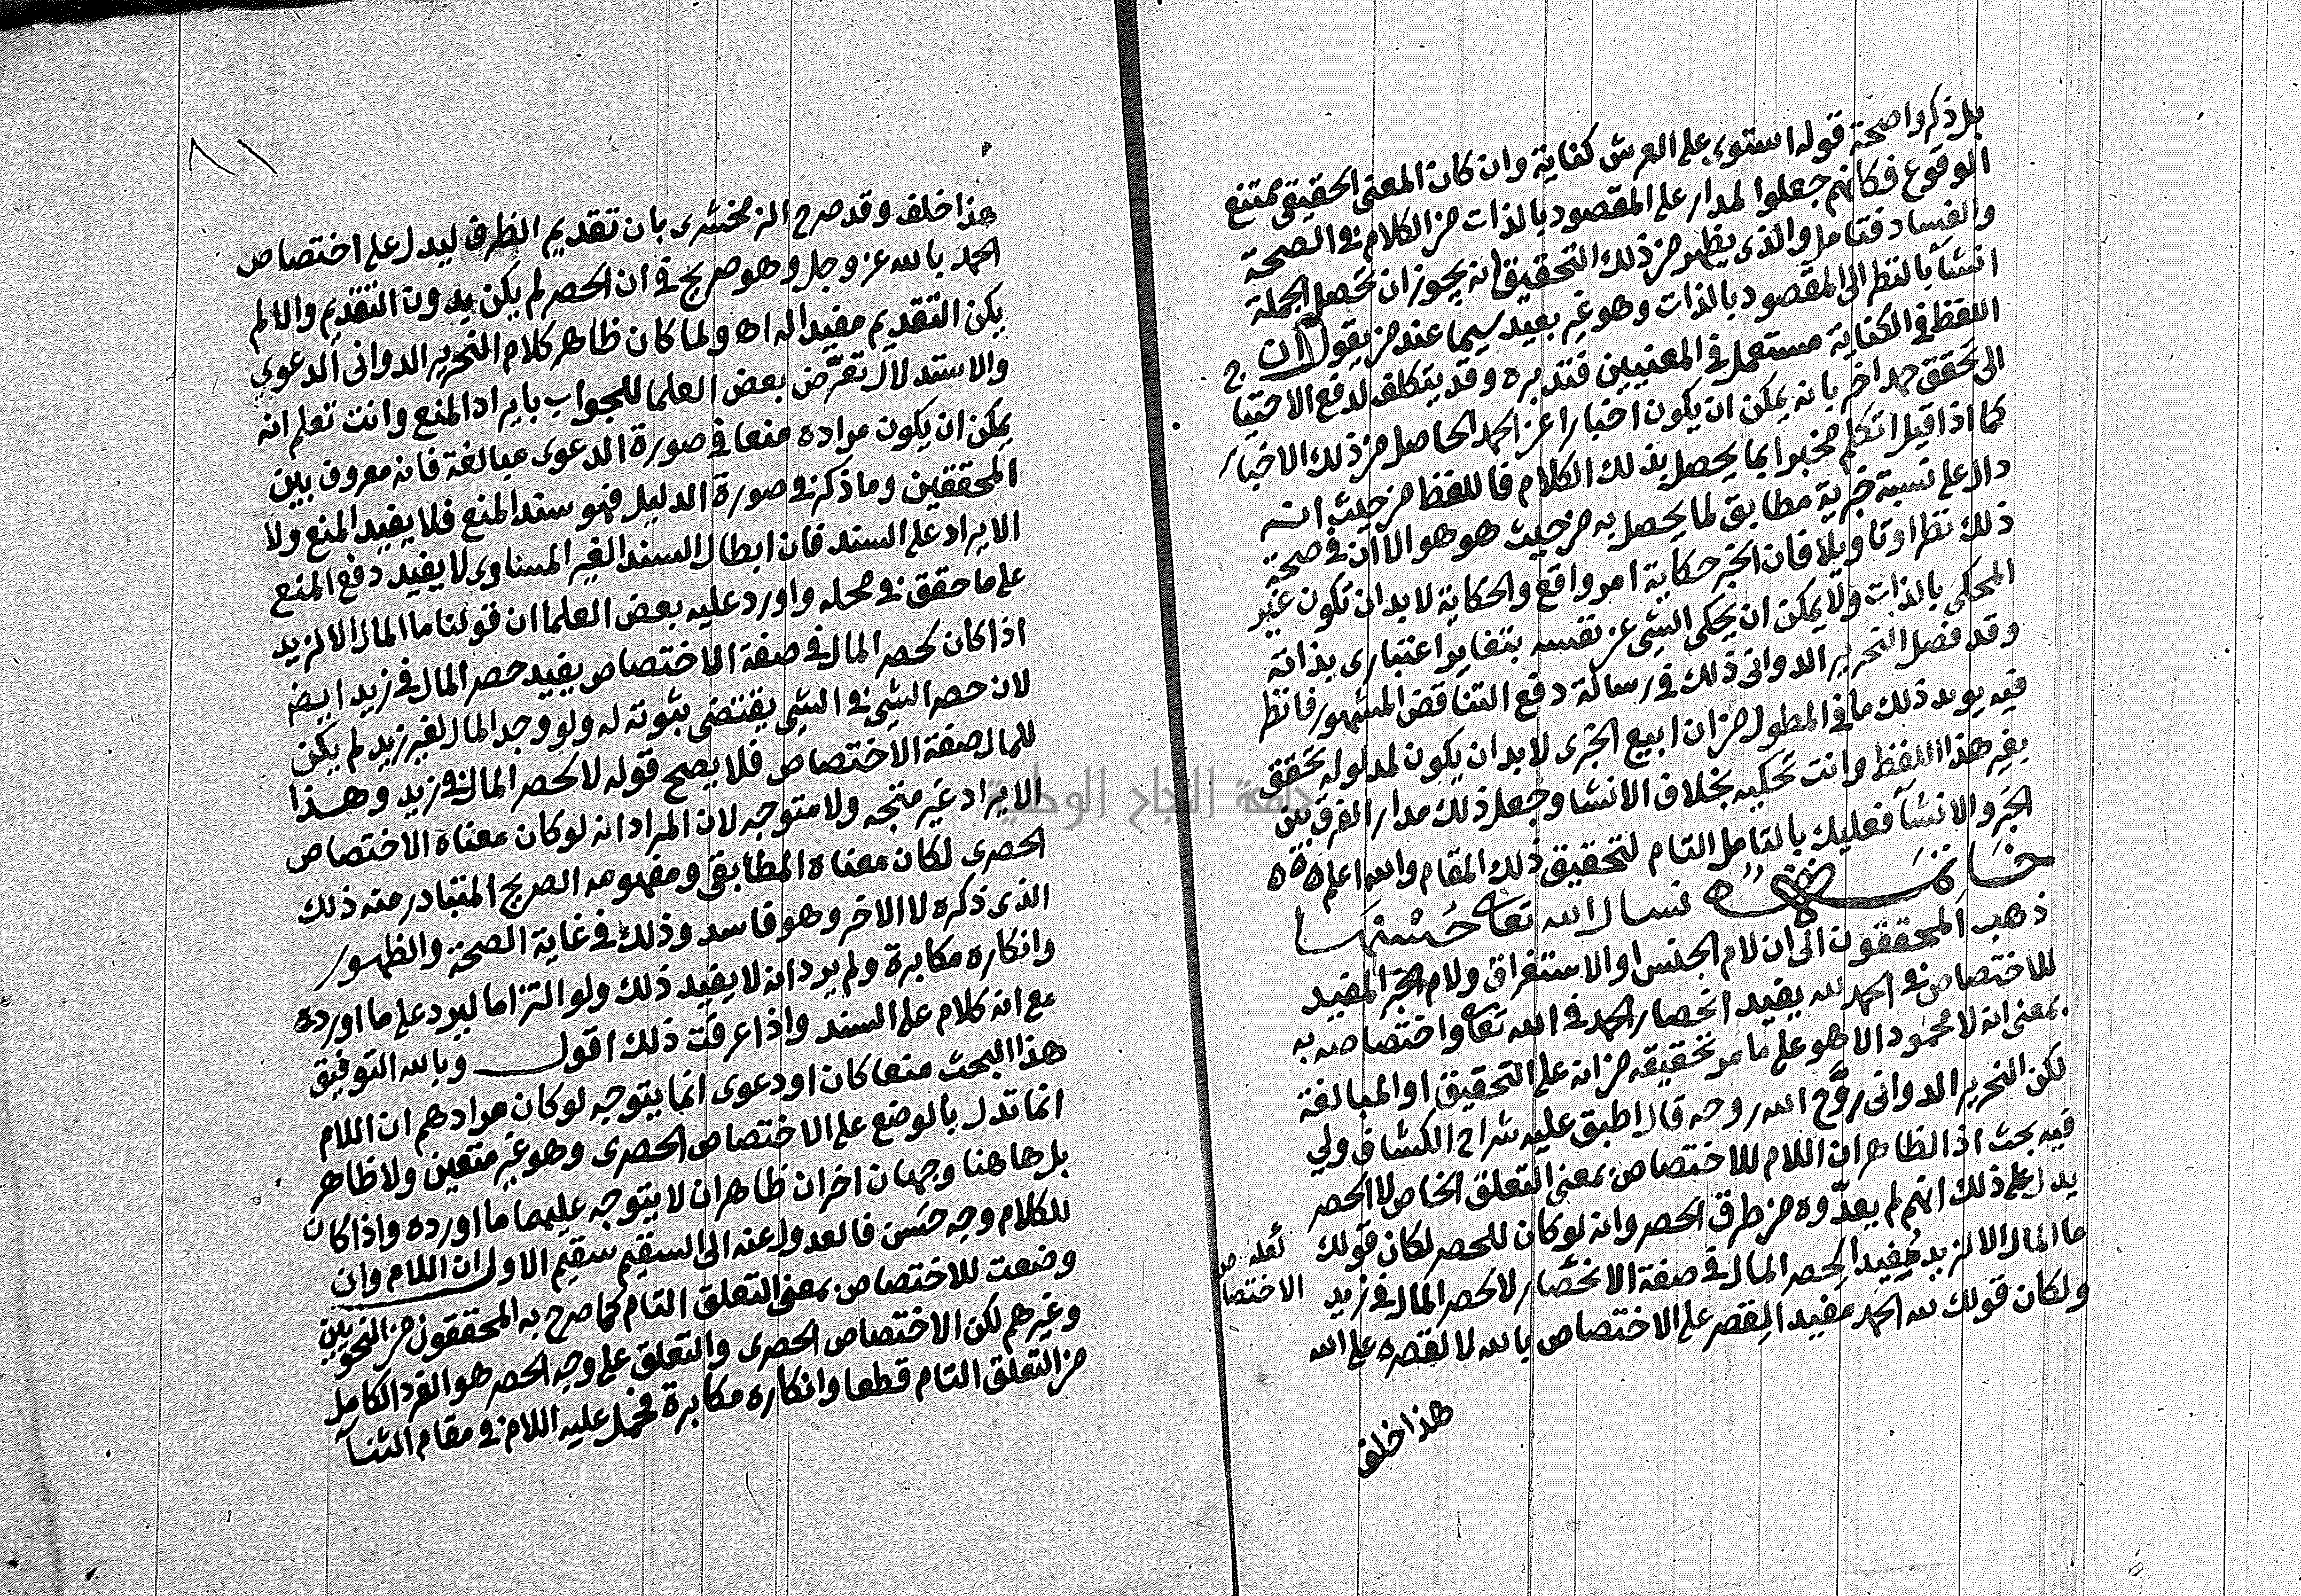 بل ذكروا صحة قوله استوى على العرش كناية وان كان المعنى الحقيقى يمتنع
الوقوع فكانهم جعلوا المدار على المقصود بالذات من الكلام فى الصحة
والفساد فتامل والذى يظهر من ذلك التحقيق انه يجوز ان تحصل الجملة
انشآ بالنظر الى المقصود بالذات وهو غير بعيد سيما عند من يقول ان
اللفظ فى الكناية مستعمل فى المعنيين فتدبره وقد يتكلف لدفع الاحتيا ج
الى تحقق حمد اخر بانه يمكن ان يكون اخبارا عن الحمد الحاصل من ذلك الاخبار
كما اذا قيل اتكلم مخبرا بما يحصل بذلك الكلام فاللفظ من حيث انه
دال على نسبة خبرية مطابق لما يحصل به من حيث هو هو الا ان فى صحة
ذلك نظرا وتاويلا فان الخبر حكاية امر واقع والحكاية لا بد ان تكون غير
المحكى بالذات ولا يمكن ان يحكى الشى عن نفسه بتغاير اعتبارى بذاته
وقد فصل النحرير الدوانى ذلك فى رسالة دفع التناقض المشهور فانظر
فيه يويد ذلك ما فى المطول من ان ابيع الخبرى لا بد ان يكون لمدلوله تحقق
بغير هذا اللفظ وانت تحكيه بخلاف الانشا وجعل ذلك مدار الفرق بين
الخبر والانشآ فعليك بالتامل التام لتحقيق ذلك المقام والله اعلم
خاتمة نسال الله تعا حسنها
ذهب المحققون الى ان لام الجنس او الاستغراق ولام الجر المفيد
للاختصاص فى الحمد لله يفيد انحصار الحمد فى الله تعا واختصاصه به
بمعنى انه لا محمود الا هو على ما مر تحقيقه من انه على التحقيق او المبالغة
لكن النحرير الدوانى روّح الله روحه قال اطبق عليه شراح الكشاف ولي
فيه بحث اذ الظاهر ان اللام للاختصاص بمعنى التعلق الخاص لا الحصر
يدل على ذلك انهم لم يعدّوه من طرق الحصر وانه لو كان للحصر لكان قولك
ما المال الا لزيد مفيدا لحصر المال فى صفة الانحصار لا لحصر المال فى زيد
لعله
الاختصا ص
ولكان قولك لله الحمد مفيدا لقصر على الاختصاص بالله لا لقصره على الله
هذا خلف
٨١
هذا خلف وقد صرح الزمخشرى بان تقديم الظرف ليدل على اختصاص
الحمد بالله عز وجل وهو صريح فى ان الحصر لم يكن بدون التقديم والا لم
يكن التقديم مفيدا له اه ولما كان ظاهر كلام النحرير الدوانى الدعوي
والاستدلال تعرّض بعض العلما للجواب بايراد المنع وانت تعلم انه
يمكن ان يكون مراده منعا فى صورة الدعوى مبالغة فانه معروف بين
المحققين وما ذكر فى صورة الدليل فهو سند المنع فلا يفيد المنع ولا
الايراد على السند فان ابطال السند الغير المساوى لا يفيد دفع المنع
على ما حقق فى محله واورد عليه بعض العلما ان قولنا ما المال الا لزيد
اذا كان لحصر المال فى صفة الاختصاص يفيد حصر المال فى زيد ايض
لان حصر الشى فى الشى يقتضى ثبوته له ولو وجد المال لغير زيد لم يكن
للمال صفة الاختصاص فلا يصح قوله لا لحصر المال فى زيد وهذا
الايراد غير متجه ولا متوجه لان المراد انه لو كان معناه الاختصاص
الحصرى لكان معناه المطابقى ومفهومه الصريح المتبادر منه ذلك
الذى ذكره لا الاخر وهو فاسد وذلك فى غاية الصحة والظهور
وانكاره مكابرة ولم يرد انه لا يفيد ذلك ولو التزاما ليرد على ما اورده
مع انه كلام على السند واذا عرفت ذلك اقول وبالله التوفيق
هذا البحث منعا كان او دعوى انما يتوجه لو كان مرادهم ان اللام
انما تدل بالوضع على الاختصاص الحصرى وهو غير متعين ولا ظاهر
بل هاهنا وجهان اخران ظاهران لا يتوجه عليهما ما اورده واذا كان
للكلام وجه حسن فالعدول عنه الى السقيم سقيم الاول ان اللام وان
وضعت للاختصاص بمعنى التعلق التام كما صرح به المحققون من النحويين
وغيرهم لكن الاختصاص الحصرى والتعلق على وجه الحصر هو الفرد الكامل
من التعلق التام قطعا وانكاره مكابرة فحمل عليه اللام فى مقام الثنآ
جامعة النجاح الوطنية